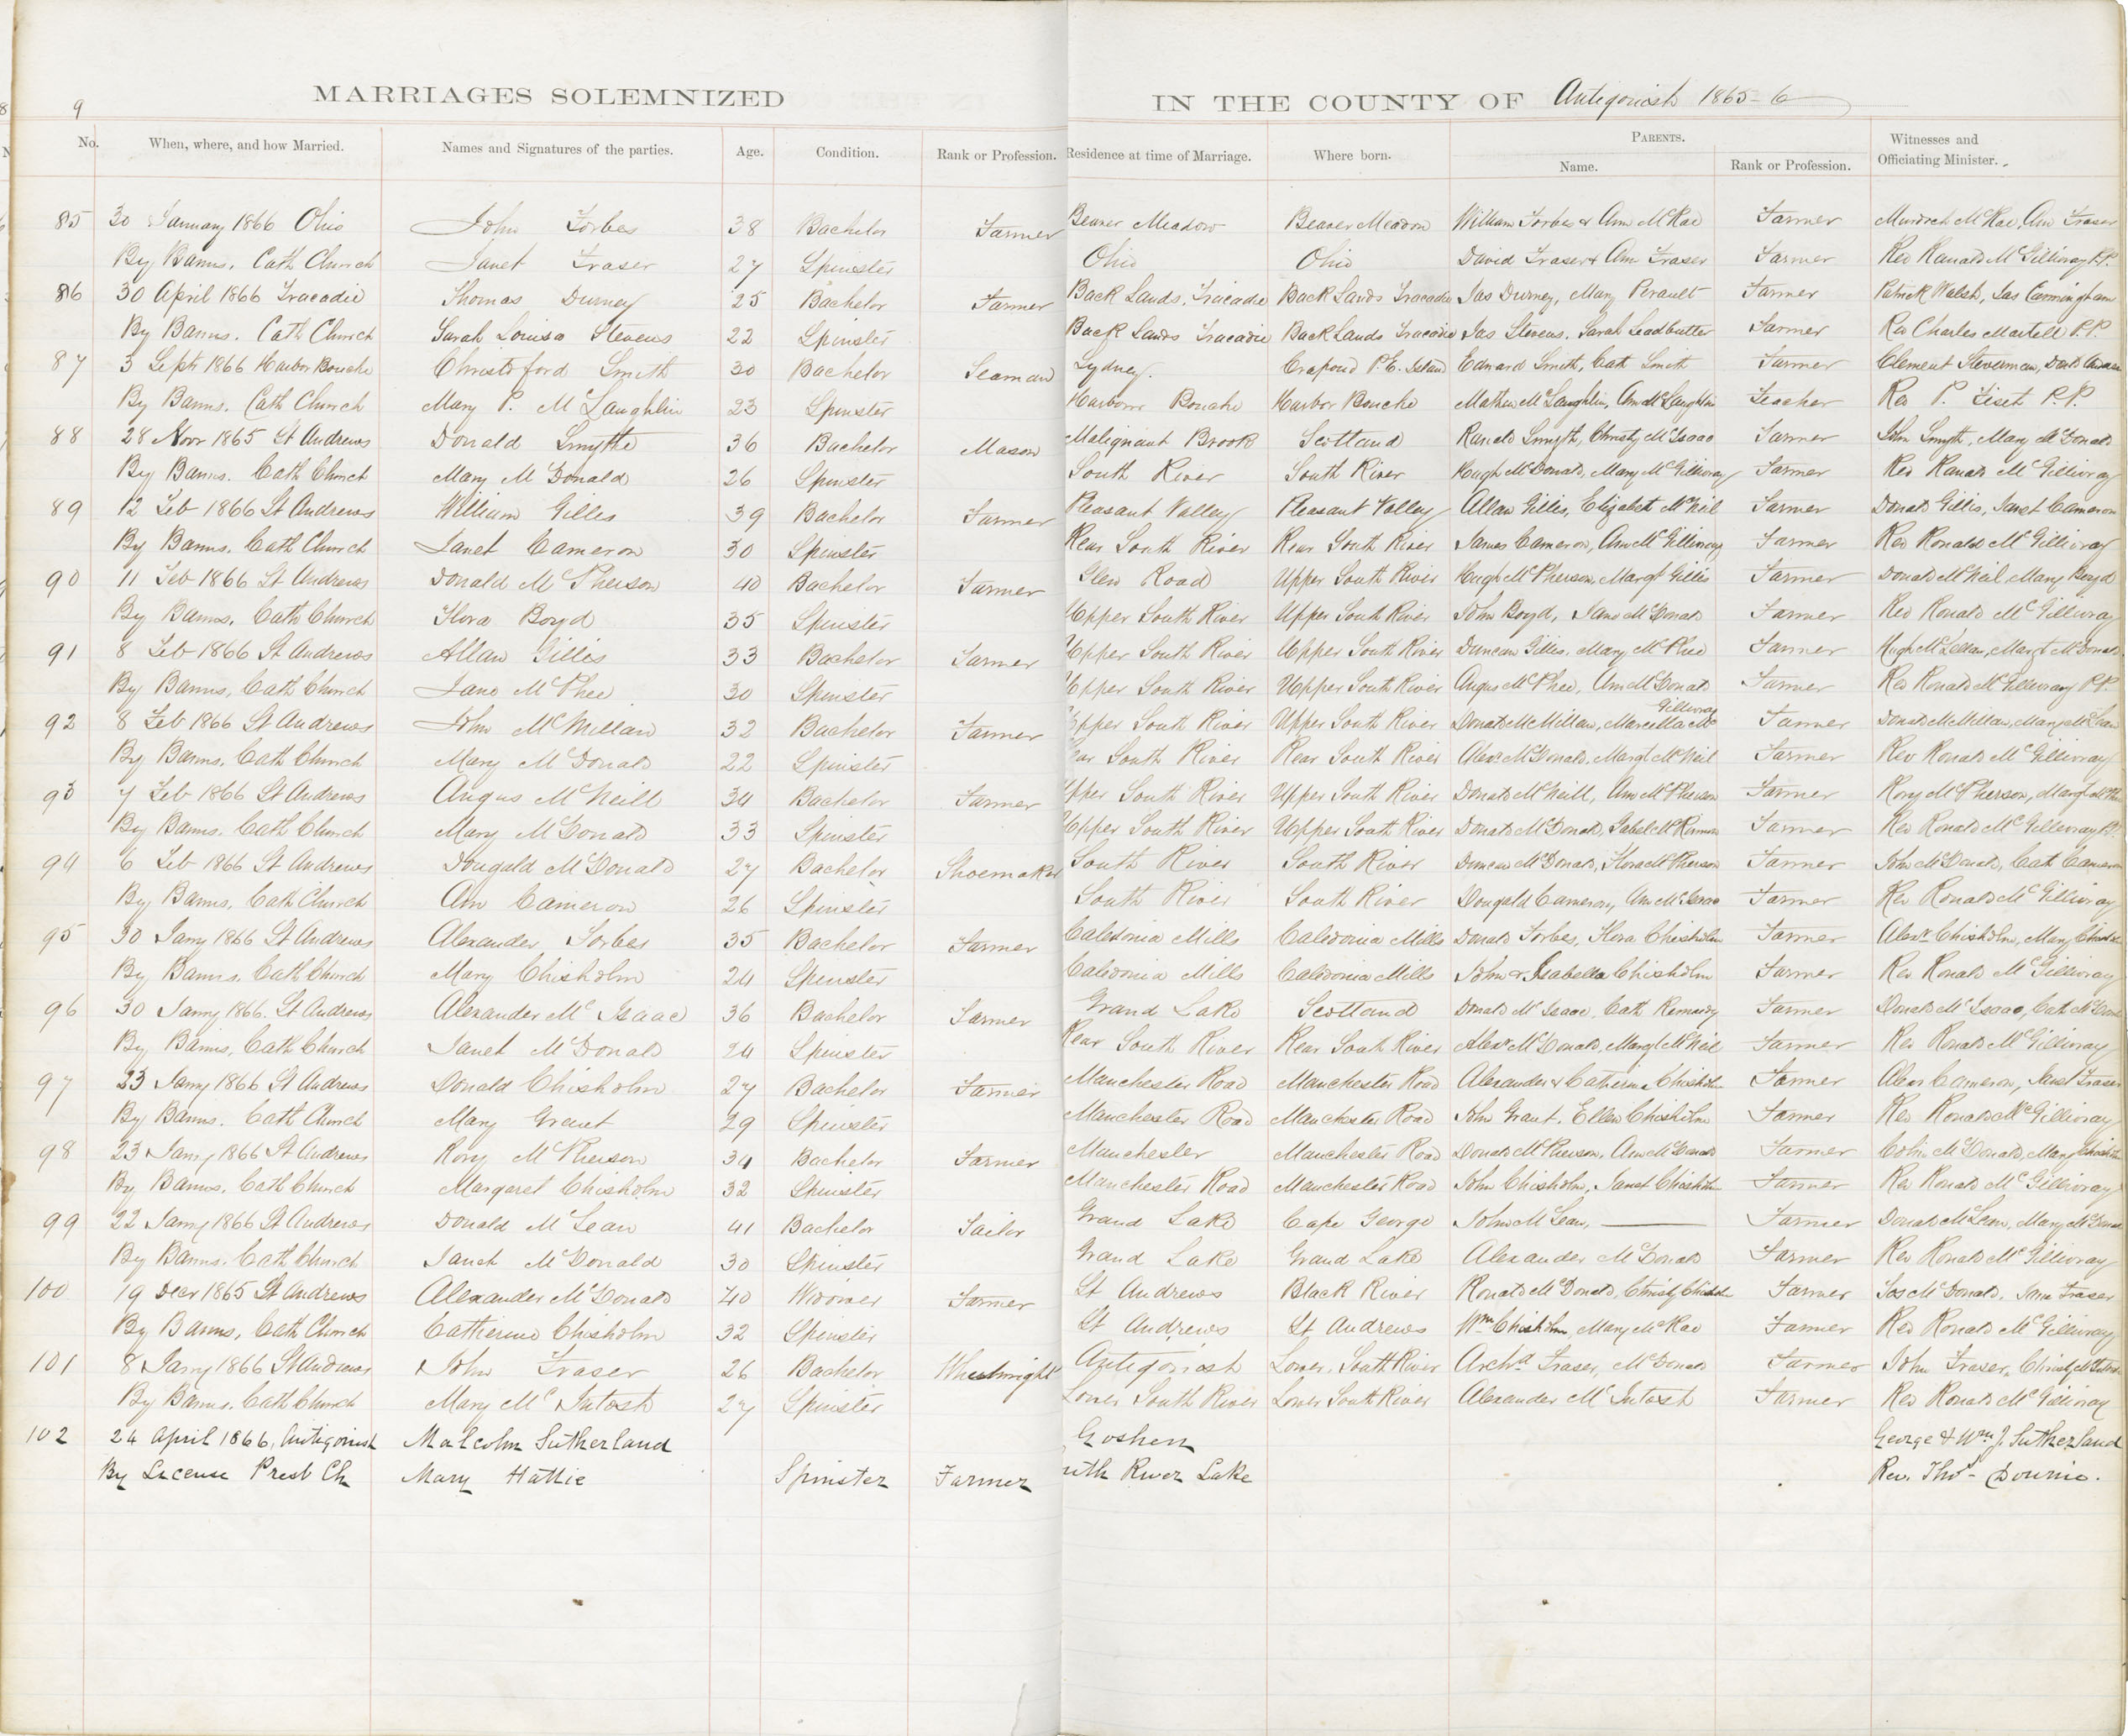 9
MARRIAGES SOLEMNIZED IN THE COUNTY OF Antigonish 1865-6
No. When, where, and how Married. Names and Signatures of the parties. Age. Condition. Rank or Profession. Residence at time of Marriage. Where born. PARENTS. Name. Rank or Profession. Witnesses and Officiating Minister.
85 30 January 1866 Ohio John Forbes 38 Bachelor Farmer Beaver Meadow Beaver Meadow William Forbes & Ann McRae Farmer Murdoch McRae, Ann Fraser
By Banns. Cath Church Janet Fraser 27 Spinster Ohio Ohio David Fraser & Ann Fraser Farmer Rev Ranald McGillivray P.P.
86 30 April 1866 Tracadie Thomas Durney 25 Bachelor Farmer Back Lands, Tracadie Back Lands Tracadie Jas Durney, Mary Perault Farmer Patrick Walsh, Jas Cunningham
By Banns. Cath Church Sarah Louisa Stevens 22 Spinster Back Lands Tracadie Back Lands Tracadie Jas Stevens. Sarah Leadbutter Farmer Rev Charles Martell P.P.
87 3 Septr 1866 Harbor Bouche Christoford Smith 30 Bachelor Seaman Sydney. Crapoud P.E. Island Edward Smith, Cath Smith Farmer Clement
By Banns. Cath Church Mary P. McLaughlin 23 Spinster Harbour Bouche Harbor Bouche Mathew McLaughlin, Ann McLaughlin Teacher Rev P. Fiset P.P.
88 28 Novr 1865 St Andrews Donald Smythe 36 Bachelor Mason Malignant Brook Scotland Ranald Smyth, Christy McIsaac Farmer John Smyth, Mary McDonald
By Banns. Cath Church Mary McDonald 26 Spinster South River South River Hugh McDonald, Mary McGillivray Farmer Rev Ranald McGillivray
89 12 Feb 1866 St Andrews William Gillis 39 Bachelor Farmer Pleasant Valley Pleasant Valley Allan Gillis, Elizabeth McNeil Farmer Donald Gillis, Janet Cameron
By Banns. Cath Church Janet Cameron 30 Spinster Rear South River Rear South River James Cameron, Ann McGillivray Farmer Rev Ronald McGillivray
90 11 Feb 1866 St Andrews Donald McPherson 40 Bachelor Farmer Glen Road Upper South River Hugh McPherson, Margt Gillis Farmer Donald McNeil, Mary Boyd
By Banns. Cath Church Flora Boyd 35 Spinster Upper South River Upper South River John Boyd, Jane McDonald Farmer Rev Ronald McGillivray
91 8 Feb 1866 St Andrews Allan Gillis 33 Bachelor Farmer Upper South River Upper South River Duncan Gillis, Mary McPhee Farmer Hugh McLellan, Margt McDonald
By Banns, Cath Church Jane McPhee 30 Spinster Upper South River Upper South River Angus McPhee, Ann McDonald Farmer Rev Ronald McGillivray P.P.
92 8 Feb 1866 St Andrews John McMillan 32 Bachelor Farmer Upper South River Upper South River Donald McMillan, Marcella McGillivray Farmer Donald McMillan, Mary McLean
By Banns, Cath Church Mary McDonald 22 Spinster Rear South River Rear South River Alexr McDonald, Margt McNeil Farmer Rev Ronald McGillivray
93 7 Feb 1866 St Andrews Angus McNeill 34 Bachelor Farmer Upper South River Upper South River Donald McNeill, Ann McPherson Farmer Rory McPherson, Margt
By Banns. Cath Church Mary McDonald 33 Spinster Upper South River Upper South River Donald McDonald, Isabel McKinnon Farmer Rev Ronald McGillivray P.P.
94 6 Feb 1866 St Andrews Dougald McDonald 27 Bachelor Shoemaker South River South River Duncan McDonald, Flora McPherson Farmer John McDonald, Cath Cameron
By Banns, Cath Church Ann Cameron 26 Spinster South River South River Dougald Cameron, Ann McIsaac Farmer Rev Ronald McGillivray
95 30 Jany 1866 St Andrews Alexander Forbes 35 Bachelor Farmer Caledonia Mills Caledonia Mills Donald Forbes, Flora Chisholm Farmer Alexr Chisholm, Mary Chisholm
By Banns, Cath Church Mary Chisholm 24 Spinster Caledonia Mills Caledonia Mills John & Isabella Chisholm Farmer Rev Ronald McGillivray
96 30 Jany 1866. St Andrews Alexander McIsaac 36 Bachelor Farmer Grand Lake Scotland Donald McIsaac, Cath Kennedy Farmer Donald McIsaac, Cath McDonald
By Banns, Cath Church Janet McDonald 24 Spinster Rear South River Rear South River Alexr McDonald, Margt McNeil Farmer Rev Ronald McGillivray
97 23 Jany 1866 St Andrews Donald Chisholm 27 Bachelor Farmer Manchester Road Manchester Road Alexander & Catherine Chisholm Farmer Alexr Cameron, Janet Fraser
By Banns. Cath Church Mary Grant 29 Spinster Manchester Road Manchester Road John Grant, Ellen Chisholm Farmer Rev Ronald McGillivray
98 23 Jany 1866 St Andrews Rory McPherson 34 Bachelor Farmer Manchester Manchester Road Donald McPherson, Ann McDonald Farmer Colin McDonald, Mary Chisholm
By Banns. Cath Church Margaret Chisholm 32 Spinster Manchester Road Manchester Road John Chisholm, Janet Chisholm Farmer Rev Ronald McGillivray
99 22 Jany 1866 St Andrews Donald McLean 41 Bachelor Tailor Grand Lake Cape George John McLean, Farmer Donald McLean, Mary McDonald
By Banns. Cath Church Janet McDonald 30 Spinster Grand Lake Grand Lake Alexander McDonald Farmer Rev Ronald McGillivray
100 19 Decr 1865 St Andrews Alexander McDonald 40 Widower Farmer St Andrews Black River Ronald McDonald, Christy Chisholm Farmer Jas McDonald, Jane Fraser
By Banns, Cath Church Catherine Chisholm 32 Spinster St Andrews St Andrews Wm Chisholm, Mary McRae Farmer Rev Ronald McGillivray
101 8 Jany 1866 St Andrews John Fraser 26 Bachelor Wheelwright Antigonish Lower South River Archd Fraser, McDonald Farmer John Fraser, Christy McIntosh
By Banns. Cath Church Mary McIntosh 27 Spinster Lower South River Lower South River Alexander McIntosh Farmer Rev Ronald McGillivray
102 24 April 1866, Antigonish Malcolm Sutherland Goshen George & Wm J. Sutherland
By License Presb Ch Mary Hattie Spinster Farmer uth River Lake Rev. Thos Downie.